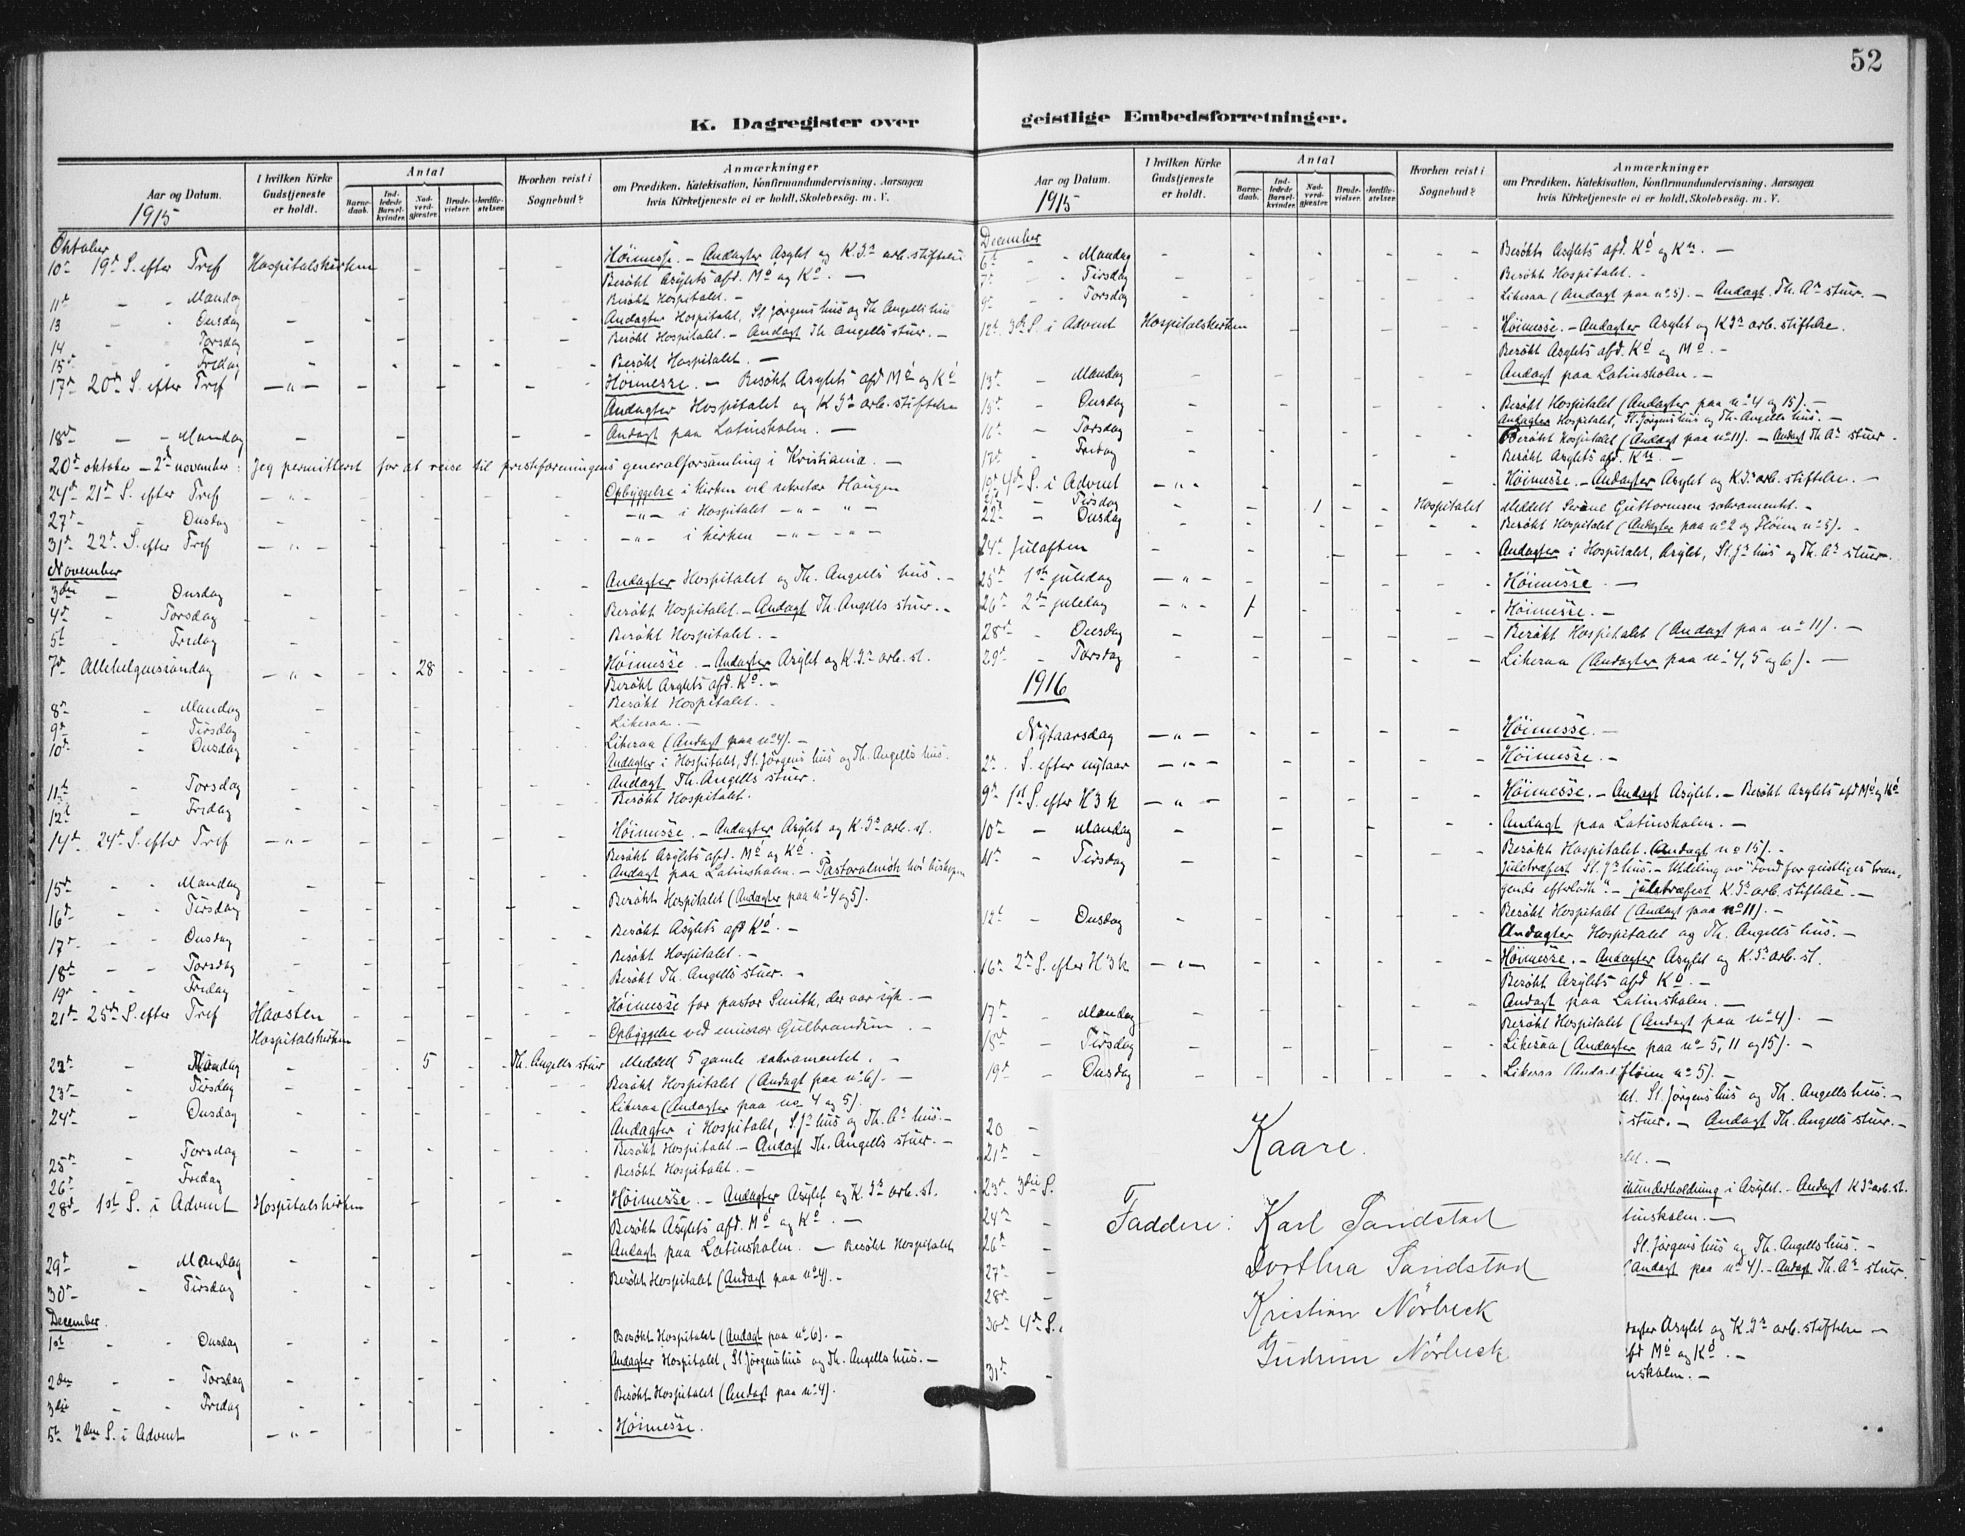 52
K. Dagregister over geistlige Embedsforretninger.
Aar og Datum.
1915
I hvilken Kirke Gudstjeneste er holdt.
Antal
Barnedaab.
Indledede Barselkvinder.
Nadverdgjæster.
Brudevielser.
Jordfæstelser.
Hvorhen reist i Sognebud?
Anmærkninger
om Prædiken, Katekisation, Konfirmandundervisning, Aarsagen
hvis Kirketjeneste ei er holdt, Skolebesøg. m. V.
Oktober
10de 19de S. efter Tref Hospitalskirken Höimesse. - Andagter Asylet og K. Jns arb. stiftelse
Besökt Asylets afd. Mö og Kö. -
11te - - Mandag Besökt Hospitalet. -
13 - - Onsdag Andagter Hospitalet, St Jørgens hus og Th. Angells hus
14 - - Torsdag Besökt Hospitalet. - Andagt Th Angells stuer. -
15de - Fredag Besökt Hospitalet. -
17de 20de S. efter Tref - " - Höimesse. - Besökt Asylets afd Mö og Kö
Andagter Hospitalet og K Jns arb. stiftelse
18de - - Mandag Andagt paa Latinskolen. -
20de oktober - 2den november: Jeg permitteret for at reise til presteforeningens generalforsamling i Kristiania. -
24de 21de S. efter Tref - " - Opbyggelse i kirken ved sekretær Haugen
27de - - Onsdag - " - i Hospitalet - " - " -
31te 22de S. efter Tref - " - - " - i kirken - " - " -
November
3die - Onsdag Andagter Hospitalet og Th. Angells hus. -
4de " Torsdag Besökt Hospitalet. - Andagt Th. Angells stuer. -
5te " Fredag Besökt Hospitalet. -
7de Allehelgenssöndag - " - 28 Höimesse. - Andagter Asylet og K. Jns arb. st.
Besökt Asylets afd. Kö. -
8de - Mandag Besökt Hospitalet. -
9de - Tirsdag Likesaa. -
10de - Onsdag Likesaa (Andagt paa no 4). -
Andagter i Hospitalet, St. Jörgens hus og Th. Angells hus.
11te - Torsdag Andagt Th. Angells stuer.
12te - Fredag Besökt Hospitalet.
14de 24de S. efter Tref - " - Höimesse. - Andagter Asylet og K. Jns arb. st.
Besökt Asylets afd. Mö og Kö.
15de - - Mandag Andagt paa Latinskolen. - Pastoralmöte hos biskopen
16de - - Tirsdag Besökt Hospitalet (Andagter paa no 4 og 5).
17de - - Onsdag Besökt Asylets afd Kö. -
18de - - Torsdag Besökt Hospitalet. -
19de - - Fredag Besökt Th. Angells stuer. -
21de 25de S. efter Tref Havsten Höimesse for pastor Smith, der var syk. -
Hospitalskirken Opbyggelse ved emissær Gulbrandsen. -
22de - Mandag 5 Th. Angells stuer Meddelt 5 gamle sakramentet. -
23de - Tirsdag Besökt Hospitalet (Andagt paa no 6). -
24de - Onsdag Likesaa (Andagter paa no 4 og 5).
Andagter i Hospitalet, St. Jns hus og Th. As hus. -
25de - Torsdag Besökt Hospitalet - Andagt Th. Angells stuer. -
26de - Fredag Besökt Hospitalet. -
28de 1ste S. i Advent Hospitalskirken Höimesse. - Andagter Asylet og K. Jns arb. st.
Besökt Asylets afd. Mö og Kö. -
29de - Mandag Andagt paa Latinskolen. - Besökt Hospitalet
30te - Tirsdag Besökt Hospitalet (Andagt paa no 4). -
December.
1ste - - Onsdag Besökt Hospitalet (Andagt paa no 6). -
Andagter Hospitalet, St Jörgens hus og Th. Angells hus. -
2den - - Torsdag Besökt Hospitalet (Andagt paa no 4).
3die - - Fredag
5te 2den S. i Advent - " - Höimesse.
Aar og Datum.
1915
I hvilken Kirke Gudstjeneste er holdt.
Antal
Barnedaab.
Indledede Barselkvinder.
Nadverdgjæster.
Brudevielser.
Jordfæstelser.
Hvorhen reist i Sognebud?
Anmærkninger
om Prædiken, Katekisation, Konfirmandundervisning, Aarsagen
hvis Kirketjeneste ei er holdt, Skolebesøg. m. V.
December
6te - - Mandag Besökt Asylets afd. Kö og Kn. -
7de - - Tirsdag Besökt Hospitalet. -
9de - Torsdag Likesaa (Andagt paa no 5). - Andagt Th. As stuer. -
12te 3die S. i Advent Hospitalskirken Höimesse. - Andagter Asylet og K Jns arb. stiftelse.
Besökt Asylets afd. Kö og Mö. -
13de - Mandag Andagt paa Latinskolen. -
15de - Onsdag Besökt Hospitalet (Andagter paa no 4 og 15). -
Andagter Hospitalet, St. Jörgens hus og Th. Angells hus. -
16de - Torsdag Besökt Hospitalet (Andagt paa no 11). - Andagt Th As stuer.
17de - Fredag Besökt Asylets afd. Kn. -
19de 4de S. i Advent - " - Höimesse. - Andagter Asylet og K. Jns arb. stiftelse. -
21de - Tirsdag 1 Hospitalet Meddelt Serine Guttormsen sakramentet. -
22de - Onsdag Besökt Hospitalet (Andagter paa no 2 og Flöien no 5). -
24de Juleaften Andagter i Hospitalet, Asylet, St. Jns hus og Th. As stuer.
25de 1ste juledag - " - Höimesse. -
26de 2den juledag - " - 1 Höimesse. -
28de - Onsdag Besökt Hospitalet (Andagt paa no 11). -
29de - Torsdag Likesaa (Andagter paa no 4, 5 og 6). -
1916
Nytaarsdag - " - Höimesse. -
2den S. efter nytaar - " - Höimesse. -
9de 1ste S. efter H 3 K - " - Höimesse. - Andagt Asylet. - Besökt Asylets afd Mö og Kö
10de - Mandag Andagt paa Latinskolen. -
11te - Tirsdag Besökt Hospitalet. (Andagt no 15). -
Juletræfest St. Jns hus. - Utdeling av "Fond for geistliges trængende efterladte". - Juletræfest K. Jns arb. stiftelse. -
12te - Onsdag Besökt Hospitalet (Andagt paa no 11). -
Andagter Hospitalet og Th. Angells hus. -
16de 2den S. efter H 3 K - " - Höimesse. - Andagter Asylet og K. Jns arb. st.
Besökt Asylets afd Kö. -
17de - Mandag Andagt paa Latinskolen. -
Besökt Hospitalet (Andagt paa no 4). -
18de - Tirsdag Likesaa (Andagter paa no 5, 11 og 15). -
19de - Onsdag Likesaa (Andagt Flöien no 5). -
St. Jörgens hus og Th. Angells hus. -
20 - stuer. - Andagt Th. Angells stuer. -
21de -
23de 3die S. underholdning i Asylet. - Andagt K Jns arb. st.
24de - tinskolen. -
26de - St. Jörgens hus og Th. Angells hus. -
27de - (Andagt paa no 4). - Andagt Th. As stuer.
28de -
30te 4de S. dagter Asylet og K. Jns arb. stiftelse -
afd Mö og Kö. -
31te - nskolen. -
Kaare.
Faddere: Karl Sandstad
Dorthea Sandstad
Kristian Nörbeck
Gudrun Nörbeck